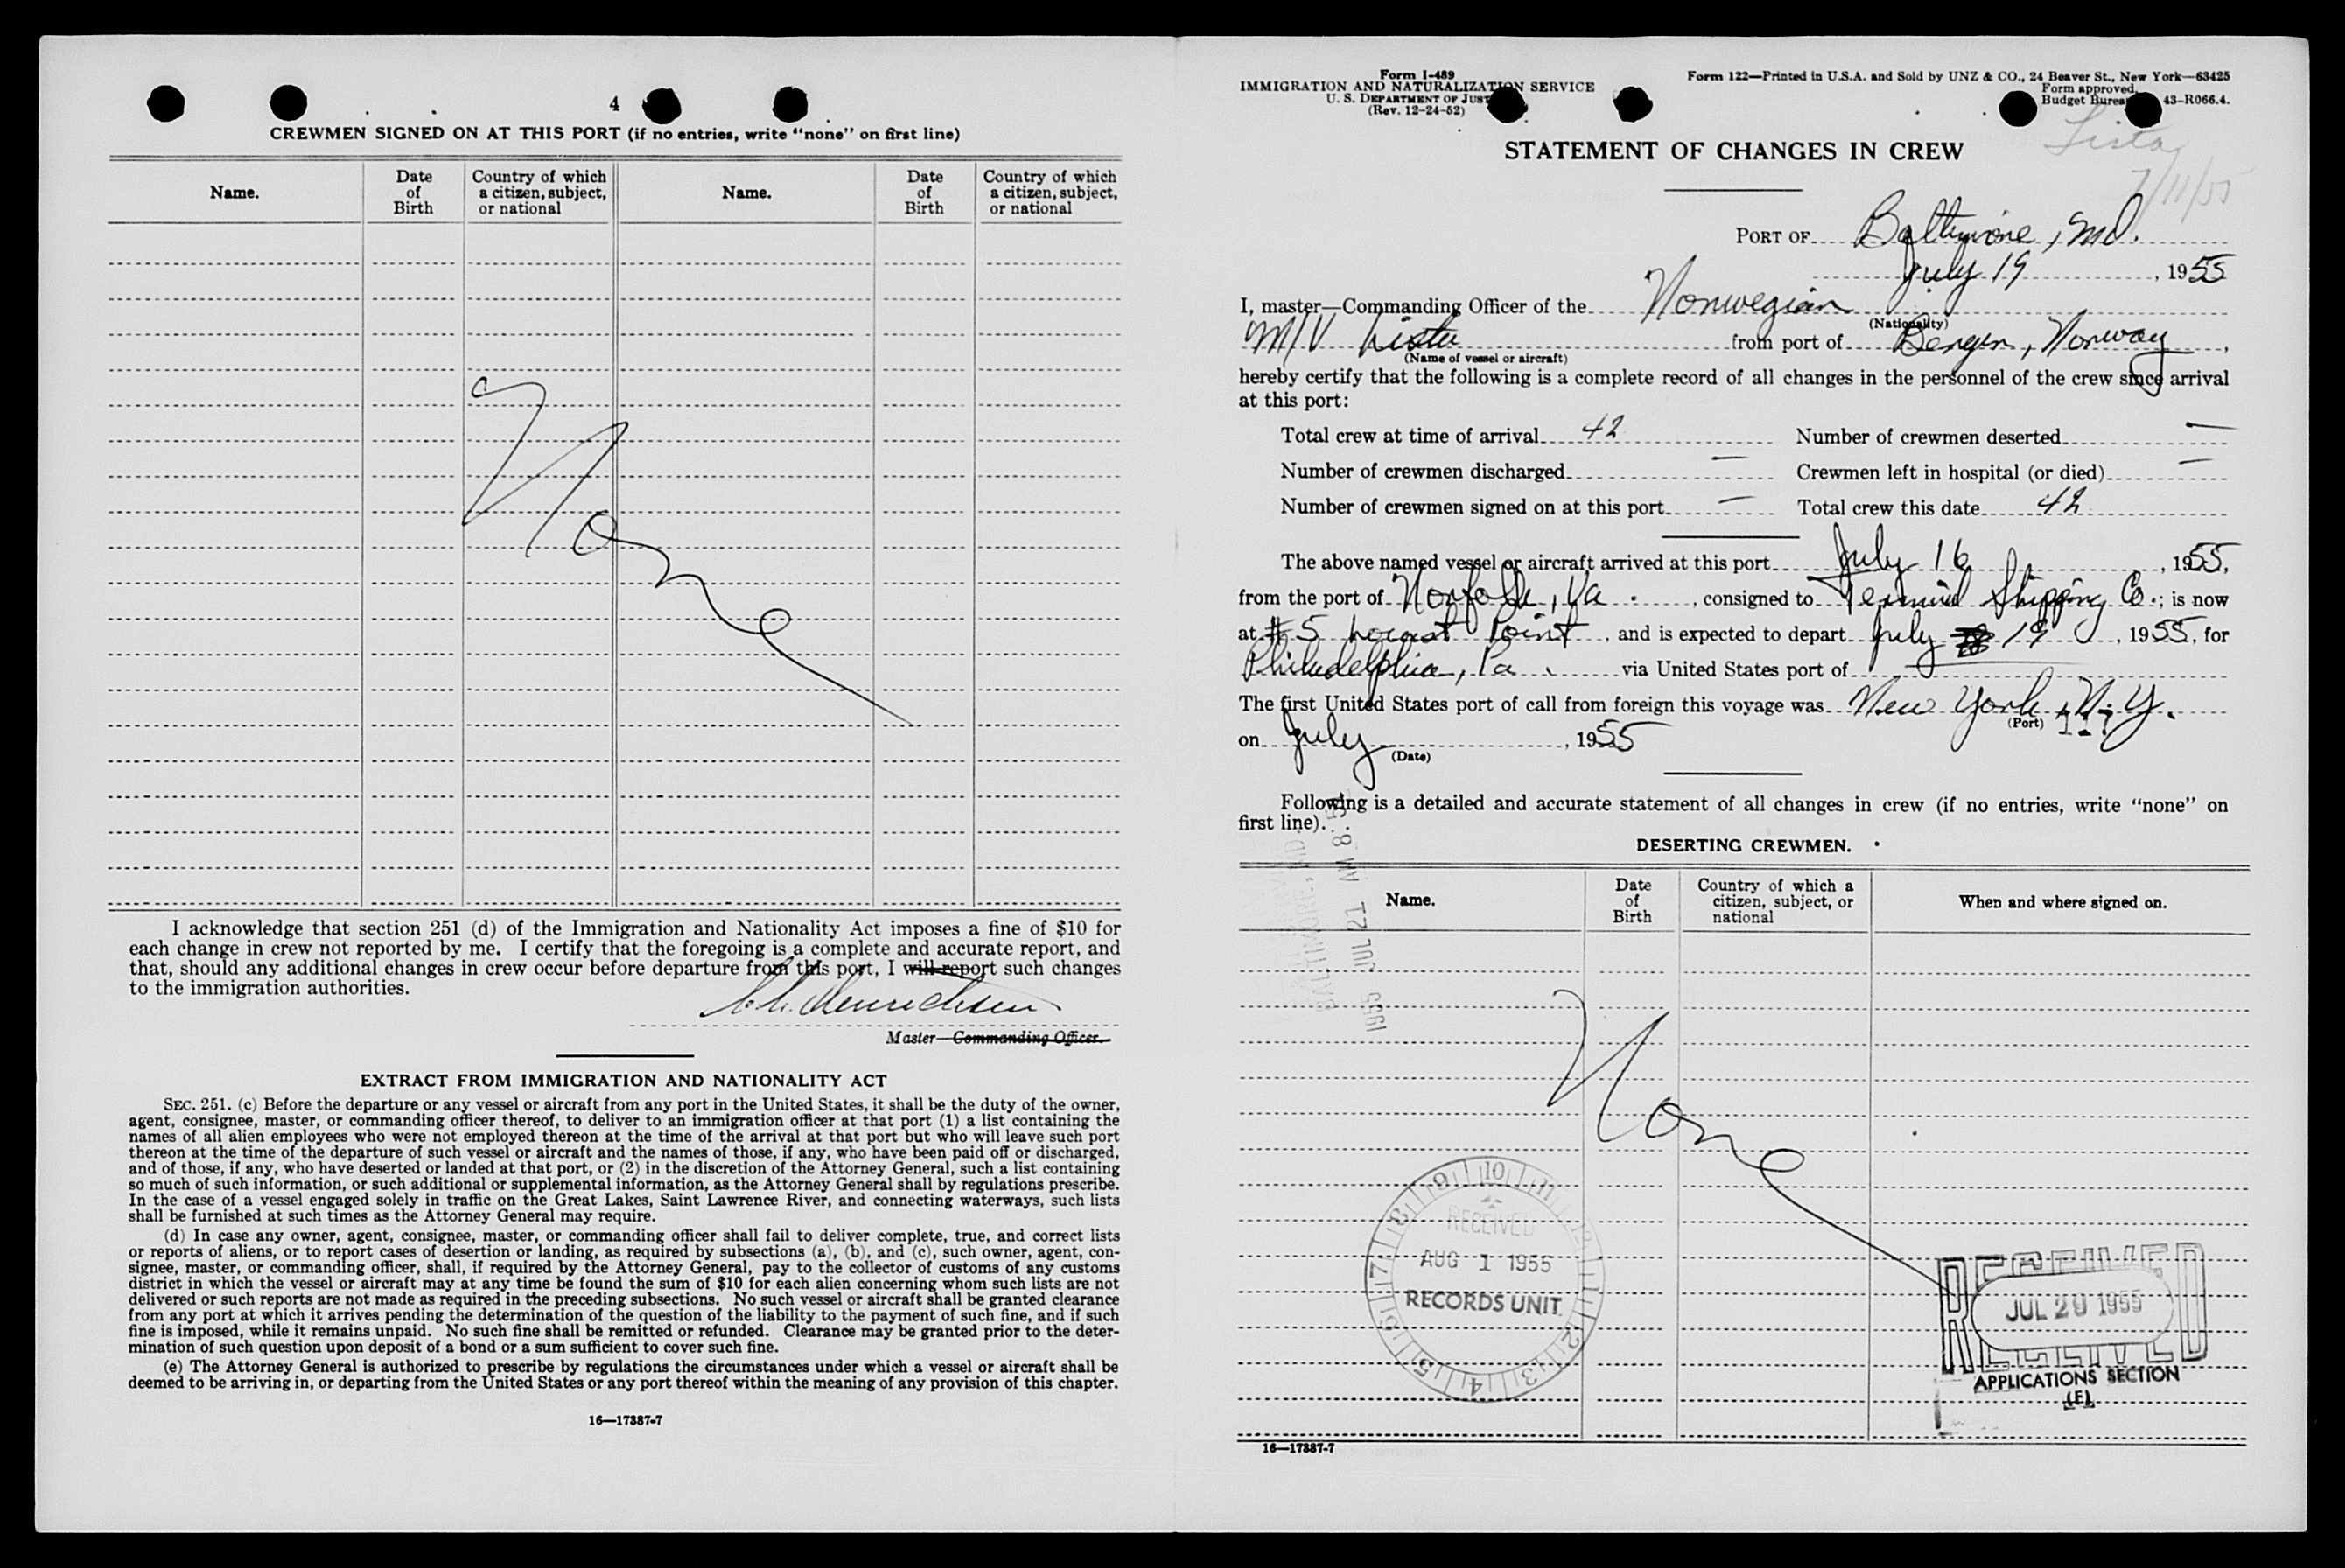 4
CREWMEN SIGNED ON AT THIS PORT (if no entries, write “none” on first line)
Name.
Date
of
Birth
Country of which
a citizen, subject,
or national
Name.
Date
of
Birth
Country of which
a citizen, subject,
or national
None
I acknowledge that section 251 (d) of the Immigration and Nationality Act imposes a fine of $10 for
each change in crew not reported by me. I certify that the foregoing is a complete and accurate report, and
that, should any additional changes in crew occur before departure from this port, I will report such changes
to the immigration authorities.
Master—Commanding Officer.
EXTRACT FROM IMMIGRATION AND NATIONALITY ACT
SEC. 251. (c) Before the departure or any vessel or aircraft from any port in the United States, it shall be the duty of the owner,
agent, consignee, master, or commanding officer thereof, to deliver to an immigration officer at that port (1) a list containing the
names of all alien employees who were not employed thereon at the time of the arrival at that port but who will leave such port
thereon at the time of the departure of such vessel or aircraft and the names of those, if any, who have been paid off or discharged,
and of those, if any, who have deserted or landed at that port, or (2) in the discretion of the Attorney General, such a list containing
so much of such information, or such additional or supplemental information, as the Attorney General shall by regulations prescribe.
In the case of a vessel engaged solely in traffic on the Great Lakes, Saint Lawrence River, and connecting waterways, such lists
shall be furnished at such times as the Attorney General may require.
(d) In case any owner, agent, consignee, master, or commanding officer shall fail to deliver complete, true, and correct lists
or reports of aliens, or to report cases of desertion or landing, as required by subsections (a), (b), and (c), such owner, agent, con-
signee, master, or commanding officer, shall, if required by the Attorney General, pay to the collector of customs of any customs
district in which the vessel or aircraft may at any time be found the sum of $10 for each alien concerning whom such lists are not
delivered or such reports are not made as required in the preceding subsections. No such vessel or aircraft shall be granted clearance
from any port at which it arrives pending the determination of the question of the liability to the payment of such fine, and if such
fine is imposed, while it remains unpaid. No such fine shall be remitted or refunded. Clearance may be granted prior to the deter-
mination of such question upon deposit of a bond or a sum sufficient to cover such fine.
(e) The Attorney General is authorized to prescribe by regulations the circumstances under which a vessel or aircraft shall be
deemed to be arriving in, or departing from the United States or any port thereof within the meaning of any provision of this chapter.
16—17387-7
Form I-489
IMMIGRATION AND NATURALIZATION SERVICE
U. S. DEPARTMENT OF JUST
(Rev. 12-24-52)
Form 122—Printed in U.S.A. and Sold by UNZ & CO., 24 Beaver St., New York—63425
Form approved.
Budget Bureau 43-R066.4.
Lista
7/11/55
STATEMENT OF CHANGES IN CREW
PORT OF Baltimore, Md.
July 19, 1955
I, master—Commanding Officer of the Norwegian
(Nationality)
M/V Lista from port of Bergen, Norway,
(Name of vessel or aircraft)
hereby certify that the following is a complete record of all changes in the personnel of the crew since arrival
at this port:
Total crew at time of arrival 42 Number of crewmen deserted —
Number of crewmen discharged — Crewmen left in hospital (or died) —
Number of crewmen signed on at this port — Total crew this date 42
The above named vessel or aircraft arrived at this port July 16, 1955,
from the port of Norfolk, Va., consigned to Terminal Shipping Co.; is now
at #5 Locust Point, and is expected to depart July 19, 1955, for
Philadelphia, Pa. via United States port of
The first United States port of call from foreign this voyage was New York, N.Y.
(Port)
on July, 1955
(Date)
Following is a detailed and accurate statement of all changes in crew (if no entries, write “none” on
first line).
DESERTING CREWMEN.
Name.
Date
of
Birth
Country of which a
citizen, subject, or
national
When and where signed on.
1955 JUL 21 AM 8.5
BALTIMORE, MD.
None
RECEIVED
AUG 1 1955
RECORDS UNIT
RECEIVED
JUL 29 1955
RECEIVED
APPLICATIONS SECTION
(F)
16—17387-7